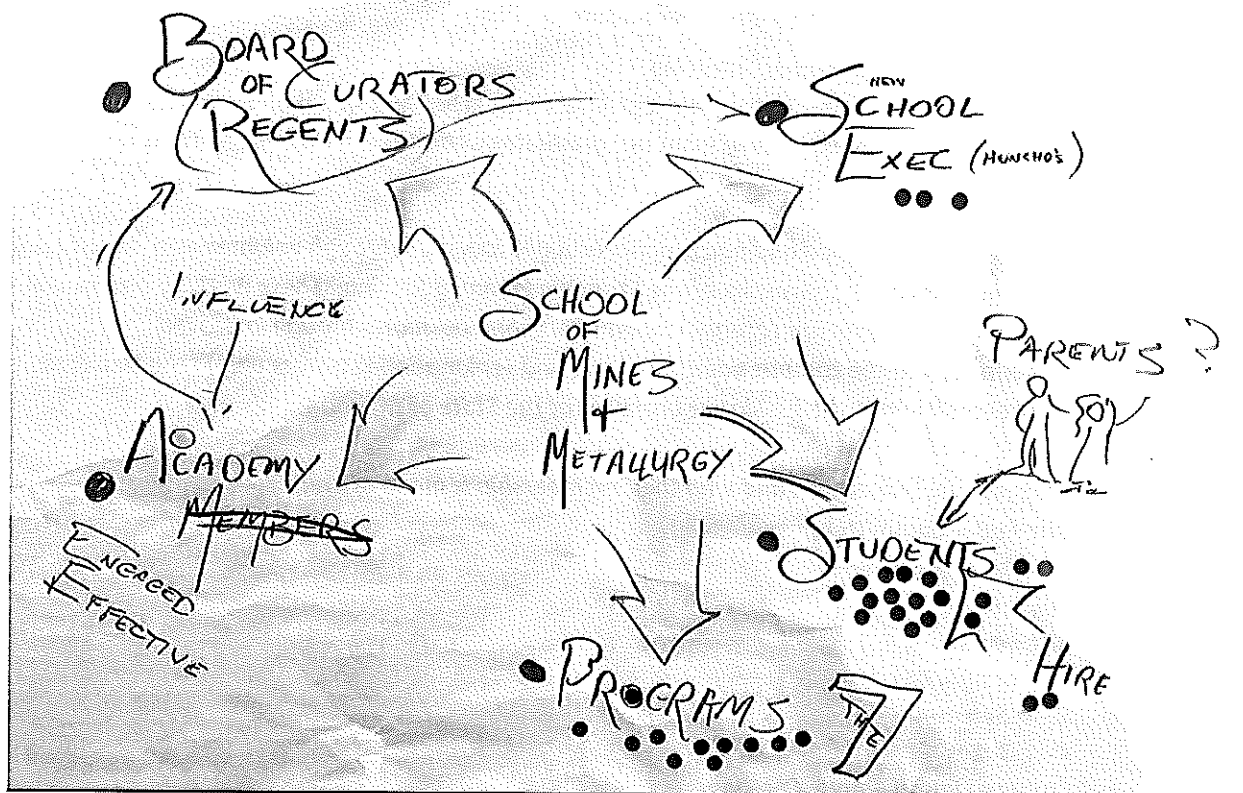 BOARD
OF CURATORS
(REGENTS)
NEW
SCHOOL
EXEC (HUNCHO'S)
INFLUENCE
SCHOOL
OF
MINES
+
METALLURGY
PARENTS?
ACADEMY
MEMBERS
ENGAGED
EFFECTIVE
STUDENTS
HIRE
PROGRAMS
THE 7